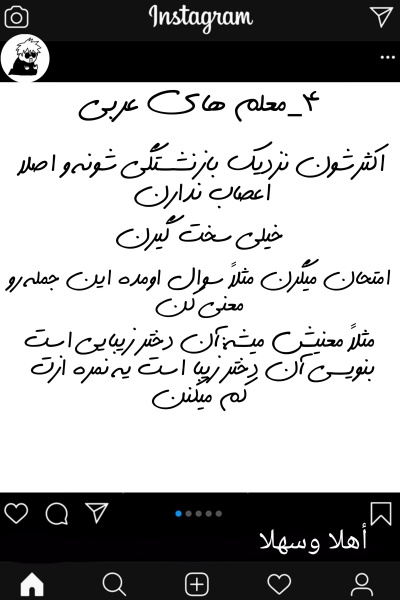 Instagram
۴_معلم های عربی
اکثرشون نزدیک بازنشستگی شونه و اصلا
اعصاب ندارن
خیلی سخت گیرن
امتحان میگرن مثلاً سوال اومده این جمله رو
معنی کن
مثلاً معنیش میشه:آن دختر زیبایی است
بنویسی آن دختر زیبا است یه نمره ازت
کم میکنن
أهلا وسهلا